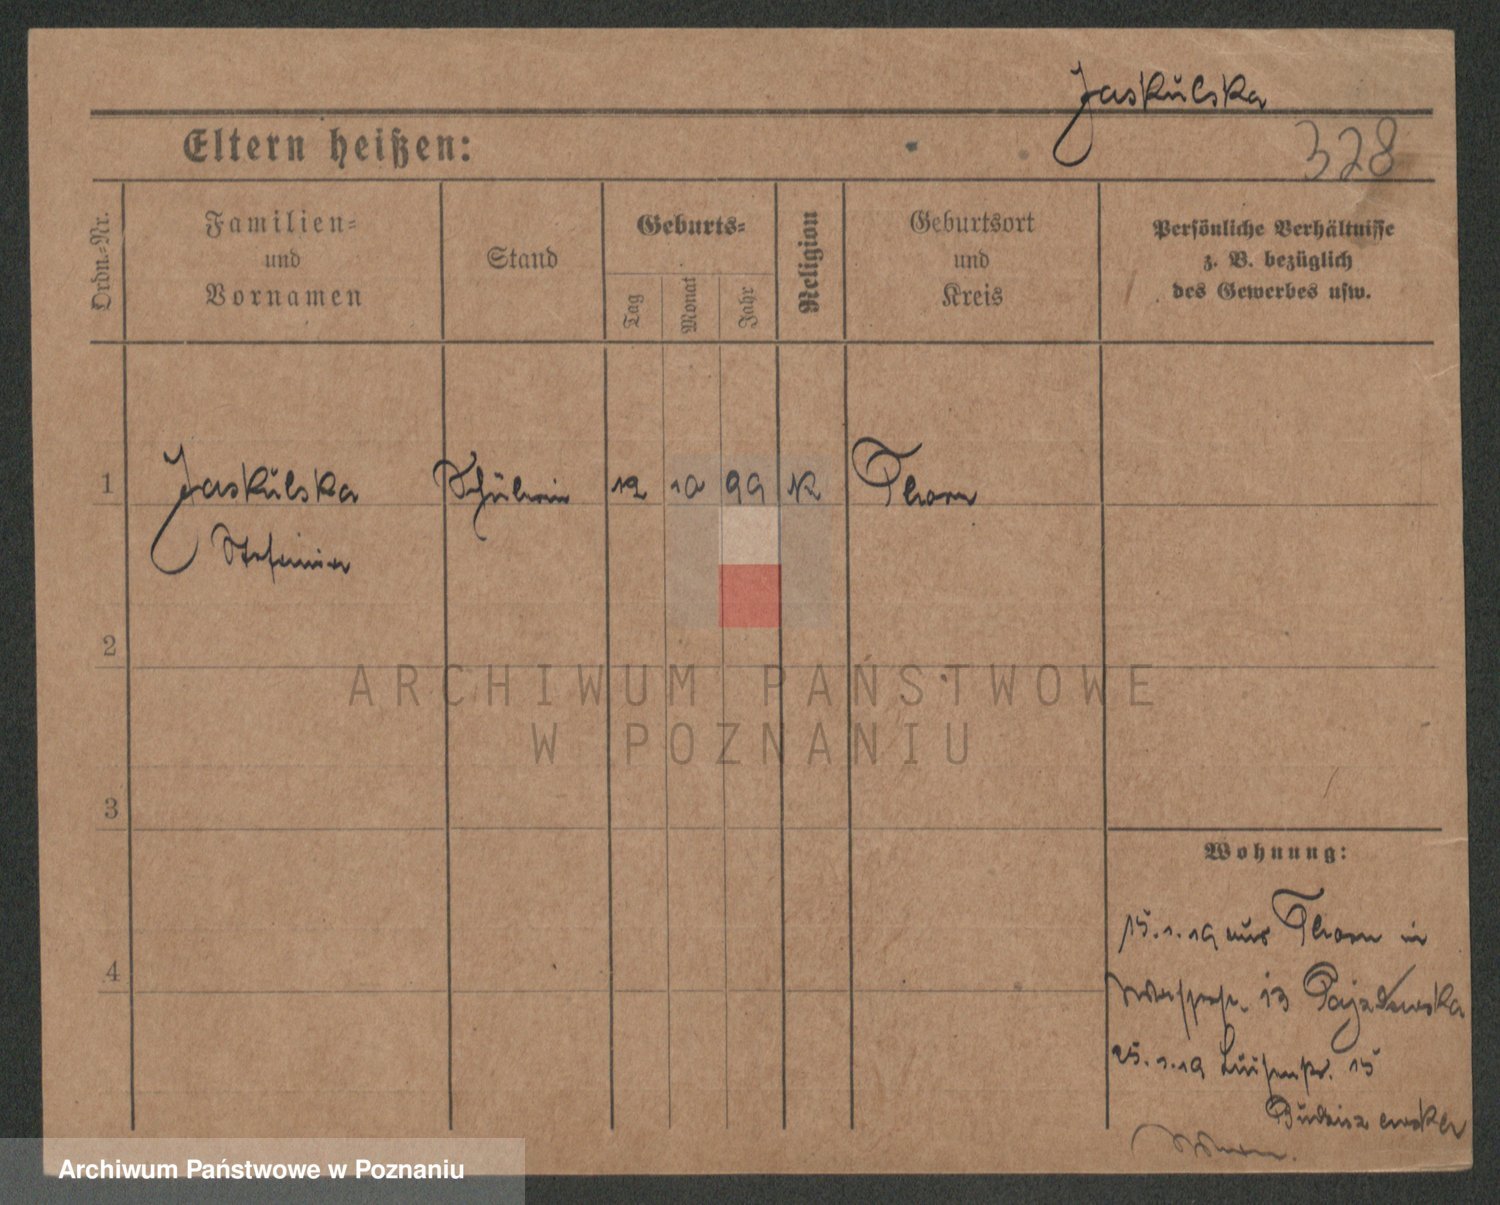 Jaskulska
328
Eltern heißen:
Ordn.-Nr.
Familien- und Vornamen
Stand
Geburts-
Tag
Monat
Jahr
Religion
Geburtsort und Kreis
Persönliche Verhältnisse
z. B. bezüglich
des Gewerbes usw.
1 Jaskulska Schülerin 12 10 99 K Thorn
Stefania
2
ARCHIWUM PAŃSTWOWE
W POZNANIU
3
Wohnung:
15.1.19 aus Thorn in
13
4
25.1.19 Luisenstr. 15
Archiwum Państwowe w Poznaniu